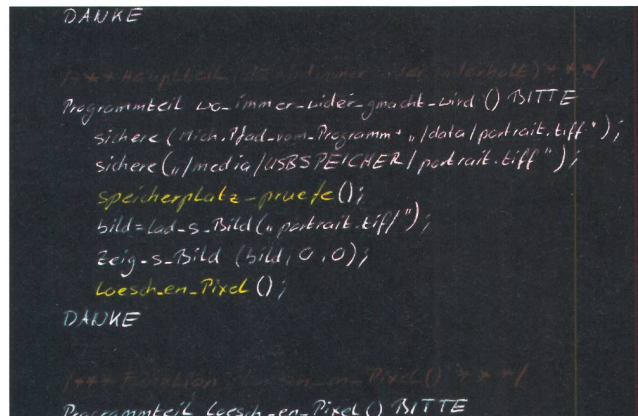 DANKE
/*** Hauptteil
Programmteil wo_immer_wider_gmacht_wird () BITTE
sichere (Mich.Pfad_vom_Programm+ „/data/portrait.tiff");
sichere („/media/USBSPEICHER/portrait.tiff");
speicherplatz_pruefe();
bild=lad_s_Bild(„portrait.tiff");
zeig_s_Bild (bild, 0, 0);
Loesch_en_Pixel();
DANKE
/*** Funktion: Pixel() ***/
Programmteil Loesch_en_Pixel() BITTE